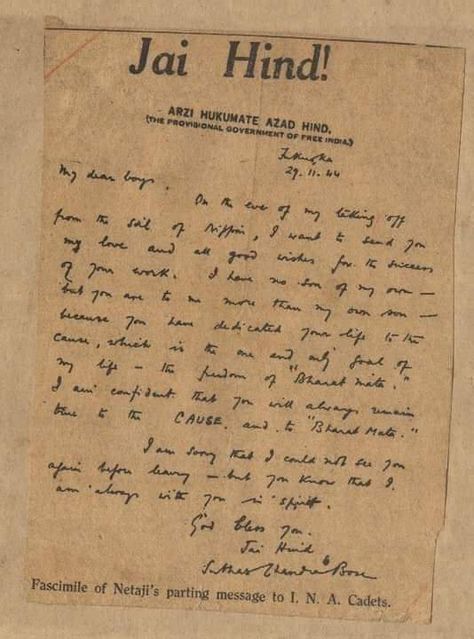 Jai Hind!
ARZI HUKUMATE AZAD HIND.
(THE PROVISIONAL GOVERNMENT OF FREE INDIA.)
Fukuoka
29.11.44
My dear boys,
On the eve of my taking off
from the soil of Nippon, I want to send you
my love and all good wishes for the success
of your work. I have no son of my own –
but you are to me more than my own son –
because you have dedicated your life to the
cause, which is the one and only goal of
my life – the freedom of "Bharat Mata."
I am confident that you will always remain
true to the CAUSE and to "Bharat Mata."
I am sorry that I could not see you
again before leaving – but you know that I
am always with you in spirit.
God bless you.
Jai Hind
Subhas Chandra Bose
Fascimile of Netaji's parting message to I. N. A. Cadets.